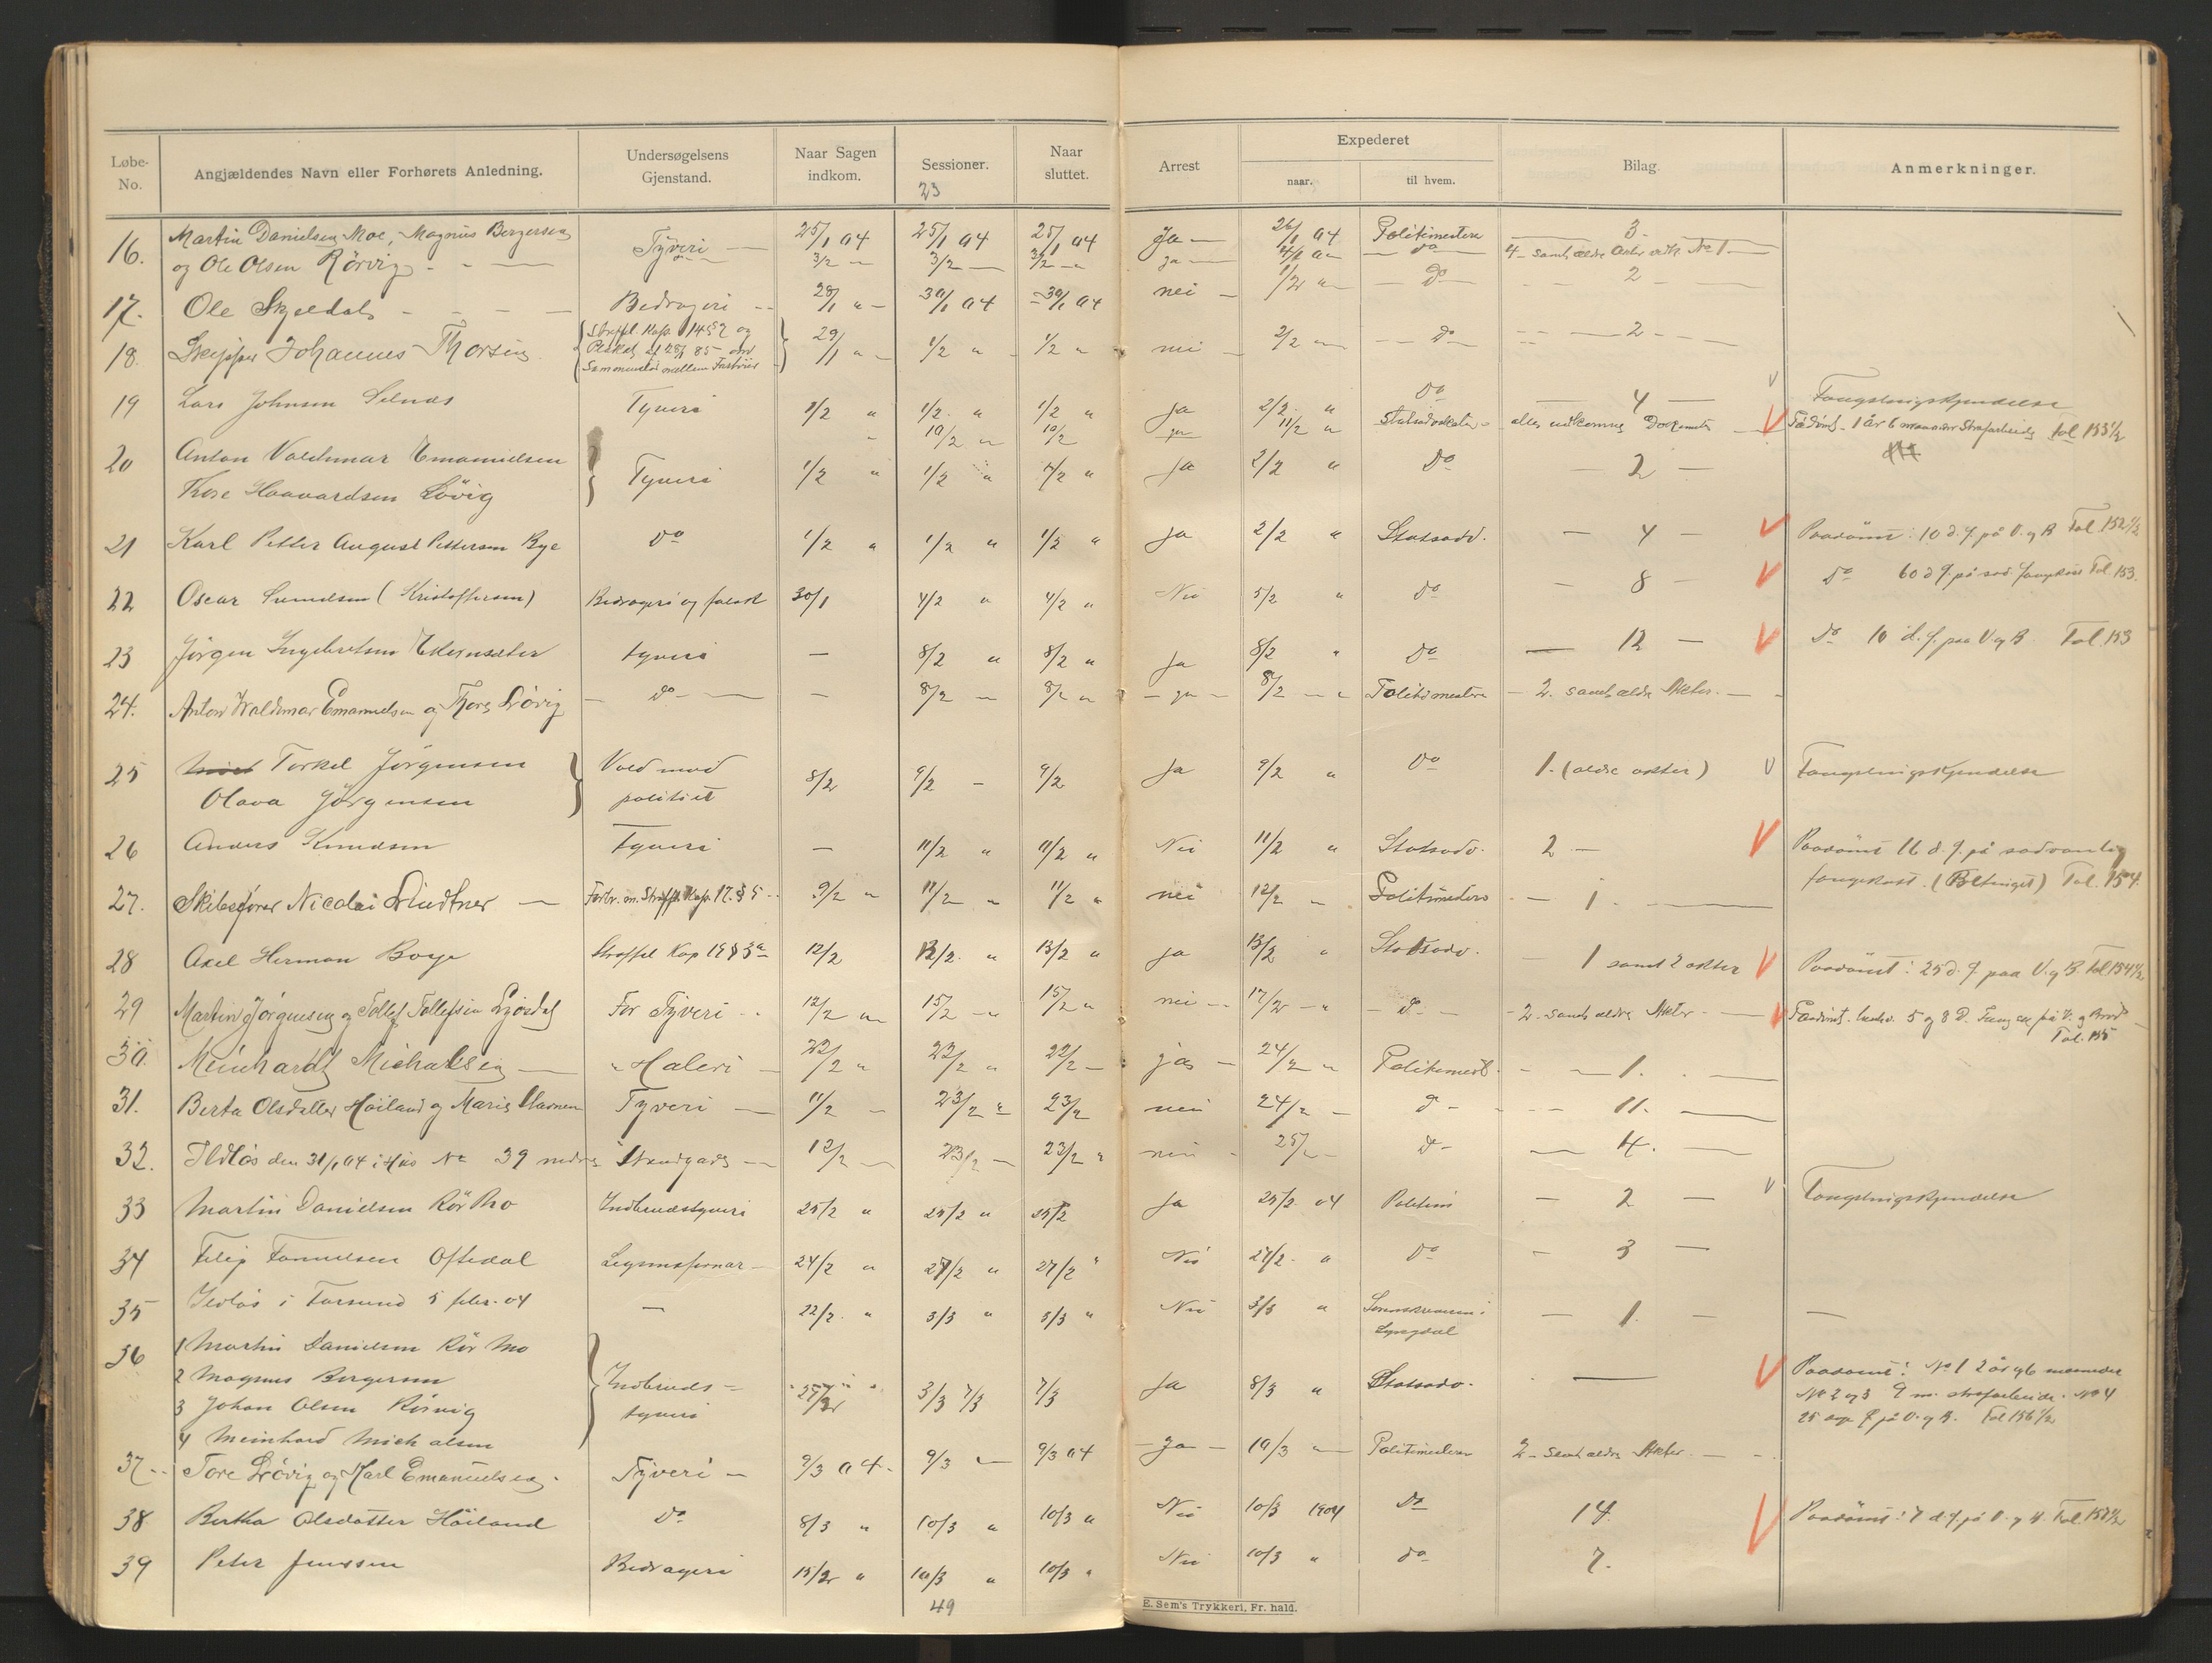 Løbe-No. Angjældendes Navn eller Forhørets Anledning. Undersøgelsens Gjenstand. Naar Sagen indkom. Sessioner. Naar sluttet. Arrest Expederet naar. til hvem. Bilag. Anmerkninger.
23
16. Martin Danielsen Moe, Magnus Bergersen 25/1 04 25/1 04 25/1 04 Ja 26/1 04 Politimesteren 3
og Ole Olsen Rörvig Tyveri 3/2 3/2 3/2 ja do 4 samt ældre Akter vedk. No 1
17. Ole Skjeldal Bedrageri 28/1 " 30/1 04 30/1 04 nei 1/2 do 2
18. Skipper Johannes Thorsen Straffel. Kap. 14 § 2 og 29/1 " 1/2 " 1/2 " nei 2/2 do 2
19 Lars Johnsen Selnæs Tyveri 1/2 " 1/2 " 1/2 " Ja 2/2 " do 4 Fængslingskjendelse
10/2 " 10/2 ja 11/2 " Statsadvokaten alle vedkomne Dokumenter Fældt 1 år 6 maaneder Strafarbeide Fol 153 1/2
20 Anton Valdemar Emanuelsen Tyveri 1/2 " 1/2 " 1/2 " Ja 2/2 " do 2
Thore Haavardsen Lövig
21 Karl Petter August Pettersen Bye do 1/2 " 1/2 " 1/2 " Ja 2/2 " Statsadv. 4 Paadömt: 10 d. f. på V. og B Fol. 152 1/2
22 Oscar (Kristoffersen) Bedrageri og falsk 30/1 4/2 " 4/2 " Nei 5/2 " do 8 do 60 d f. på sæd. fangekost Fol. 153.
23 Jörgen Ingebretsen tyveri — 8/2 " 8/2 " Ja 8/2 " do 12 do 10 d. f. paa V. og B. Fol. 153
24. Anton Waldemar Emanuelsen og Thore Lövig do — 8/2 8/2 ja 8/2 Politimesteren 2. samt ældre Akter.
25 Torkel Jörgensen Vold mod 8/2 9/2 9/2 Ja 9/2 " do 1. (ældre akter) Fængslingskjendelse
Olava Jörgensen politiet
26 Anders Knudsen Tyveri — 11/2 " 11/2 " Nei 11/2 " Statsadv. 2 Paadömt 16 d. f. på sædvanlig
fangekost. (Betinget) Fol. 154.
27. Skibsförer Nicolai Lindtner Forbr. m. Straffel. Kap. 17. § 5 9/2 " 11/2 " 11/2 " nei 12/2 Politimesteren 1.
28 Axel Herman Boye Straffel Kap 19 § 3a 12/2 13/2 " 13/2 " ja 13/2 " Statsadv. 1 samt 2 akter Paadömt: 25 d. f. paa V. og B. Fol 154 1/2
29 Martin Jörgensen og Tollef Tollefsen For Tyveri 12/2 15/2 15/2 " nei 17/2 do 2 samt ældre Akter Fældt. 5 og 8 D. Fængsel på V. og Bröd
Fol. 155
30. Meinhardt Michalsen Haleri 22/2 " 22/2 " 22/2 ja 24/2 " Politimest. 1.
31. Berta Olsdatter Höiland og Marie Tyveri 11/2 23/2 " 23/2 nei 24/2 do 11.
32. Ildlös den 31/1 04 i Hus No 39 nedre Strandgade 12/2 23/2 23/2 " nei 25/2 do 4.
33 Martin Danielsen Rör Mo Indbrudstyveri 25/2 " 25/2 " 25/2 Ja 25/2 04 Politim 2 Fængslingskjendelse
34 Filip Oftedal 24/2 " 27/2 " 27/2 " Nei 27/2 " do 3
35 Ildlös i Farsund 5 febr. 04 — 22/2 " 3/3 " 3/3 " Nei 3/3 " Sorenskriveren i 1
Lyngdal
36 1 Martin Danielsen Rör Mo
2 Magnus Bergersen Indbruds- 3/3 7/3 7/3 Ja 8/3 " Statsadv. Paadömt: No 1 2 år og 6 maaneder
3 Johan Olsen Rörvig tyveri No 2 og 3 9 m. strafarbeide. No 4
4 Meinhard Michalsen 25 dage f på V. og B. Fol 156 1/2
37. Tore Lövig og Karl Emanuelsen Tyveri 9/3 04 9/3 9/3 04 Ja 10/3 Politimesteren 2 samt ældre Akter
38 Bertha Olsdatter Höiland do 8/3 " 10/3 " 10/3 " Nei 10/3 1904 do 14 Paadömt: 7 d. f. på V. og B. Fol. 157 1/2
39 Peter Jenssen Bedrageri 15/2 " 10/3 " 10/3 " Nei 10/3 " do 7.
49
E. Sem's Trykkeri, Fr.hald.